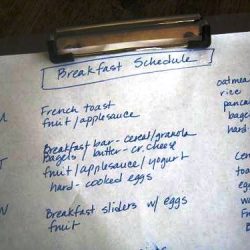 Breakfast Schedule
French toast
fruit/applesauce
Breakfast bar - cereal/granola
Bagels / butter - cr. cheese
fruit/applesauce/yogurt
hard-cooked eggs
W
Breakfast sliders w/ eggs
fruit
oatmea
rice
pan
bage
hard